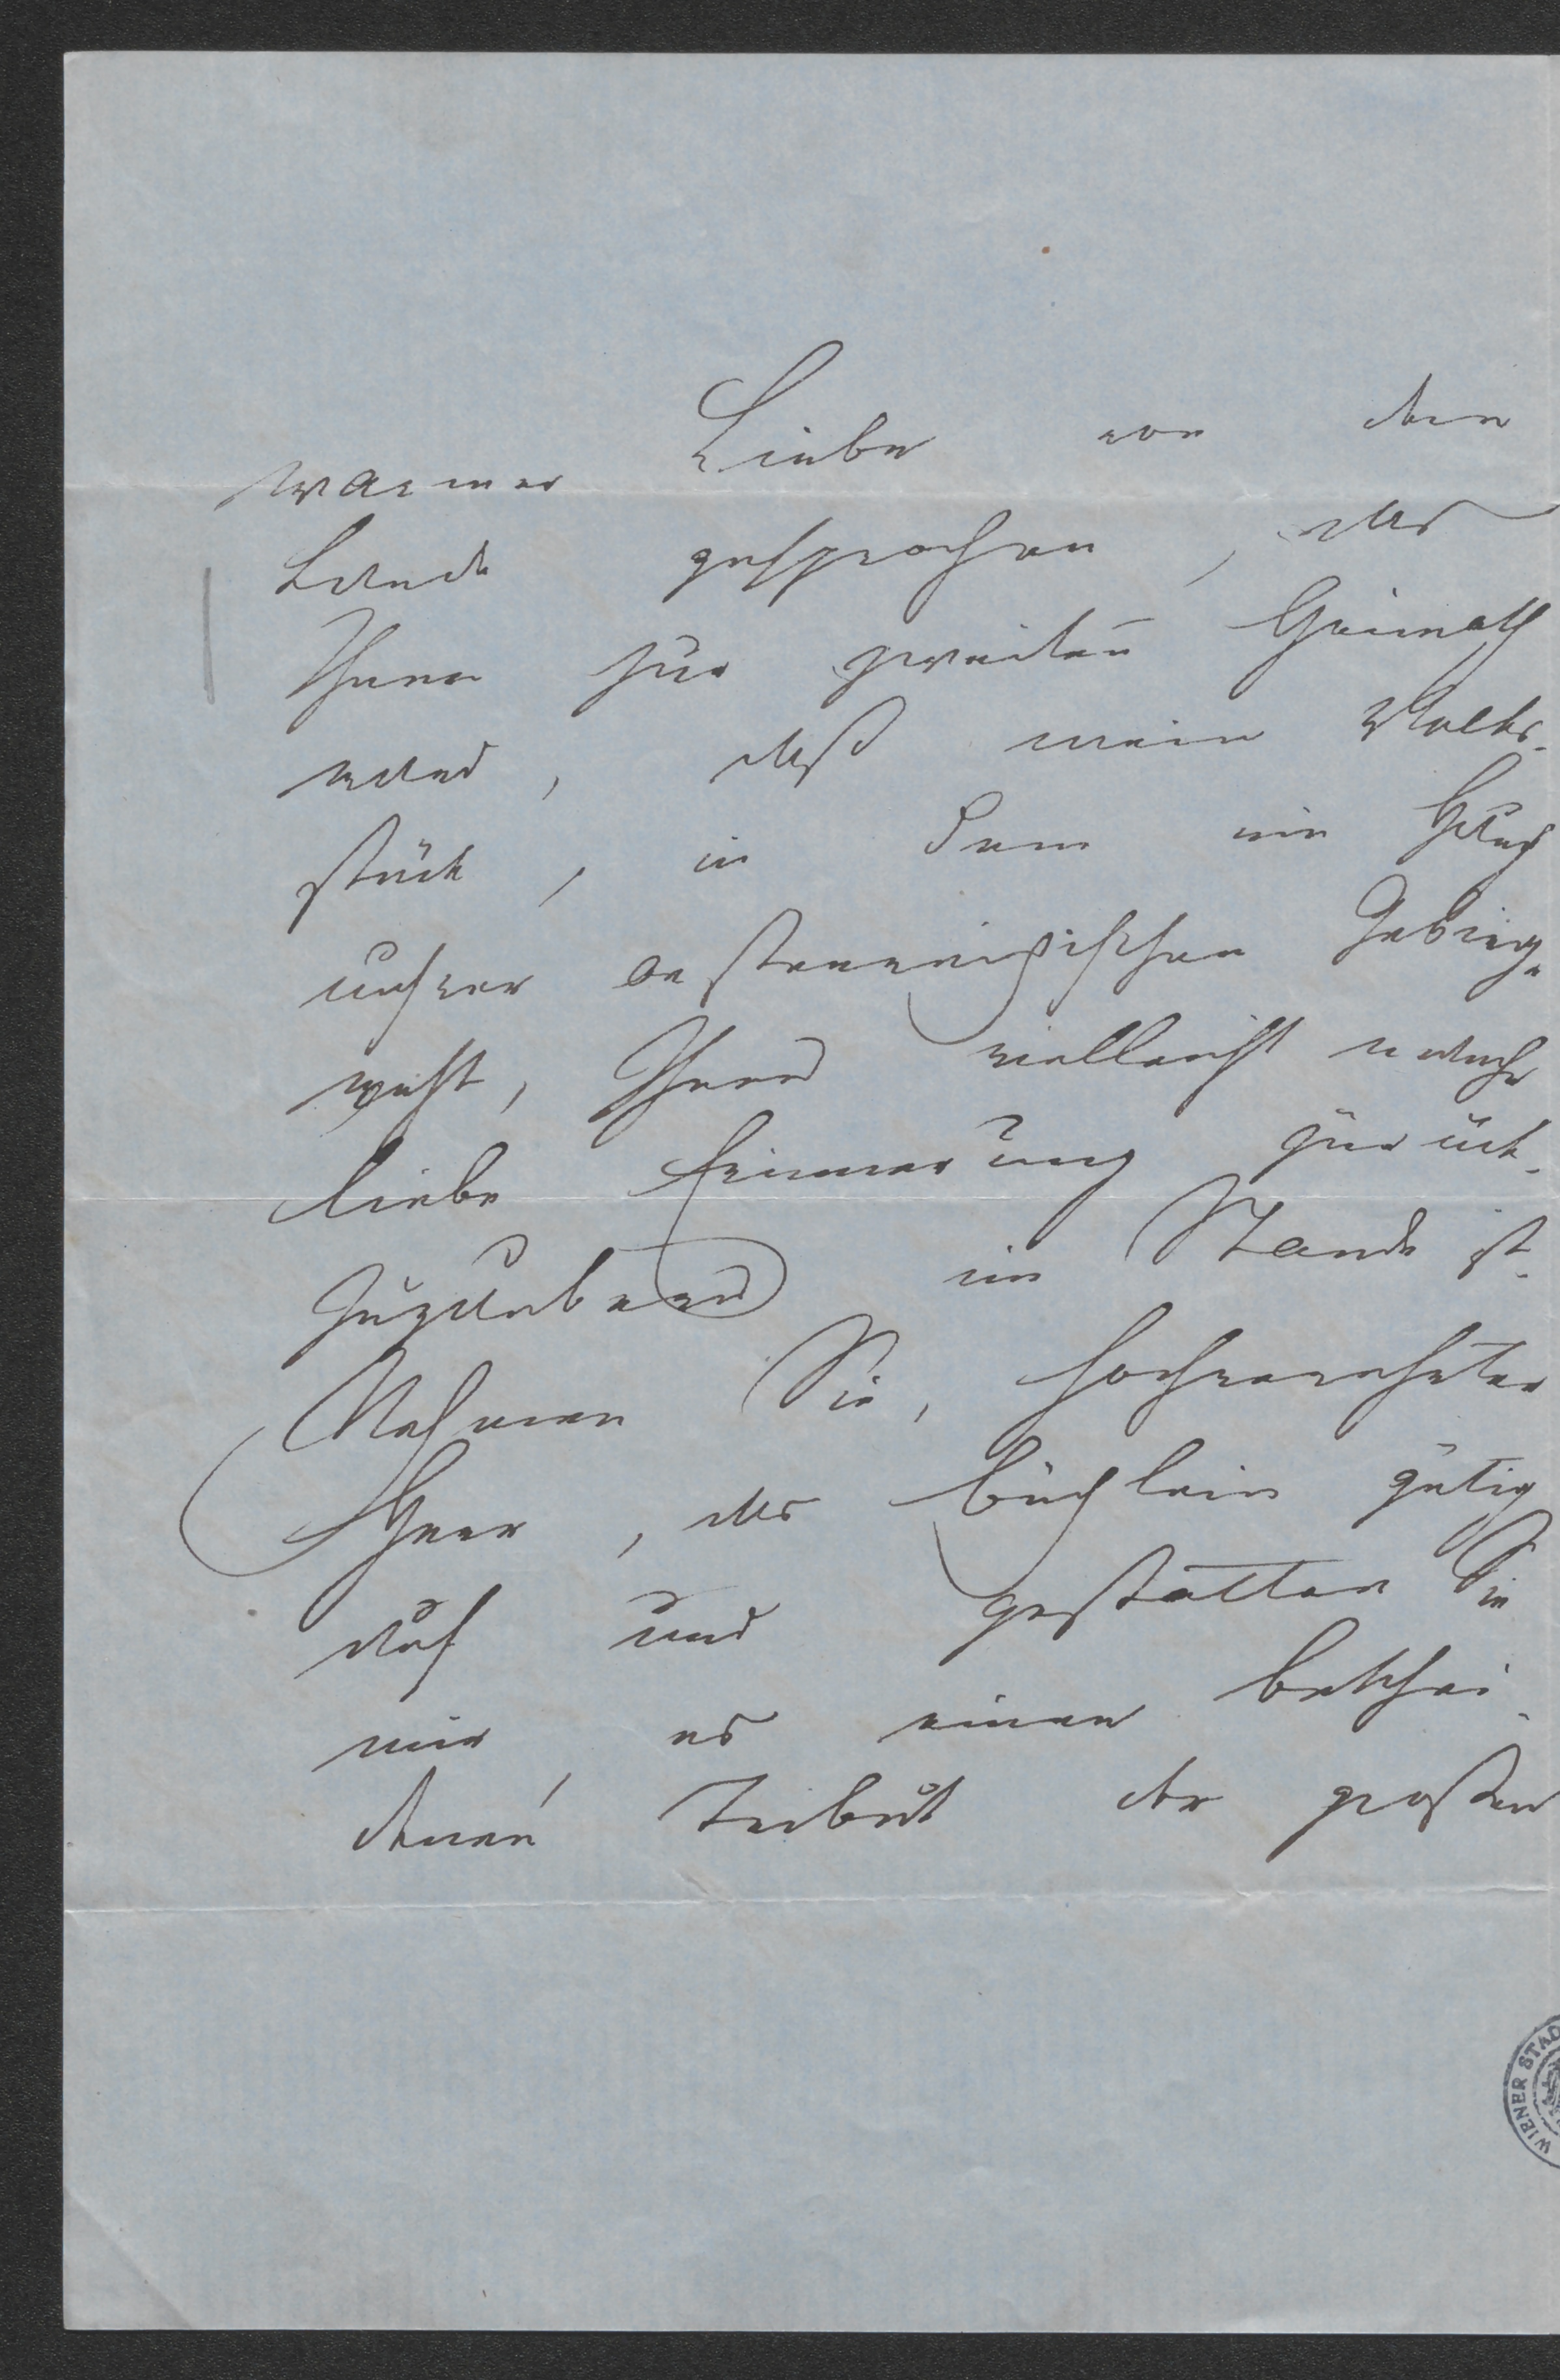 warmer Liebe von dem
Lande gesprochen, das
Ihnen zur zweiten Heimath
ward, daß mein Volks-
stück, in dem ein Hauch
unsrer oesterreichischen Gebirge
weht, Ihnen vielleicht manche
liebe Erinnerung zurück-
zuzaubern im Stande ist.
Nehmen Sie, hochverehrter
Herr, das Büchlein gütig
auf und gestatten Sie
mir, es einen beschei-
denen Tribut der großen
WIENER STAD